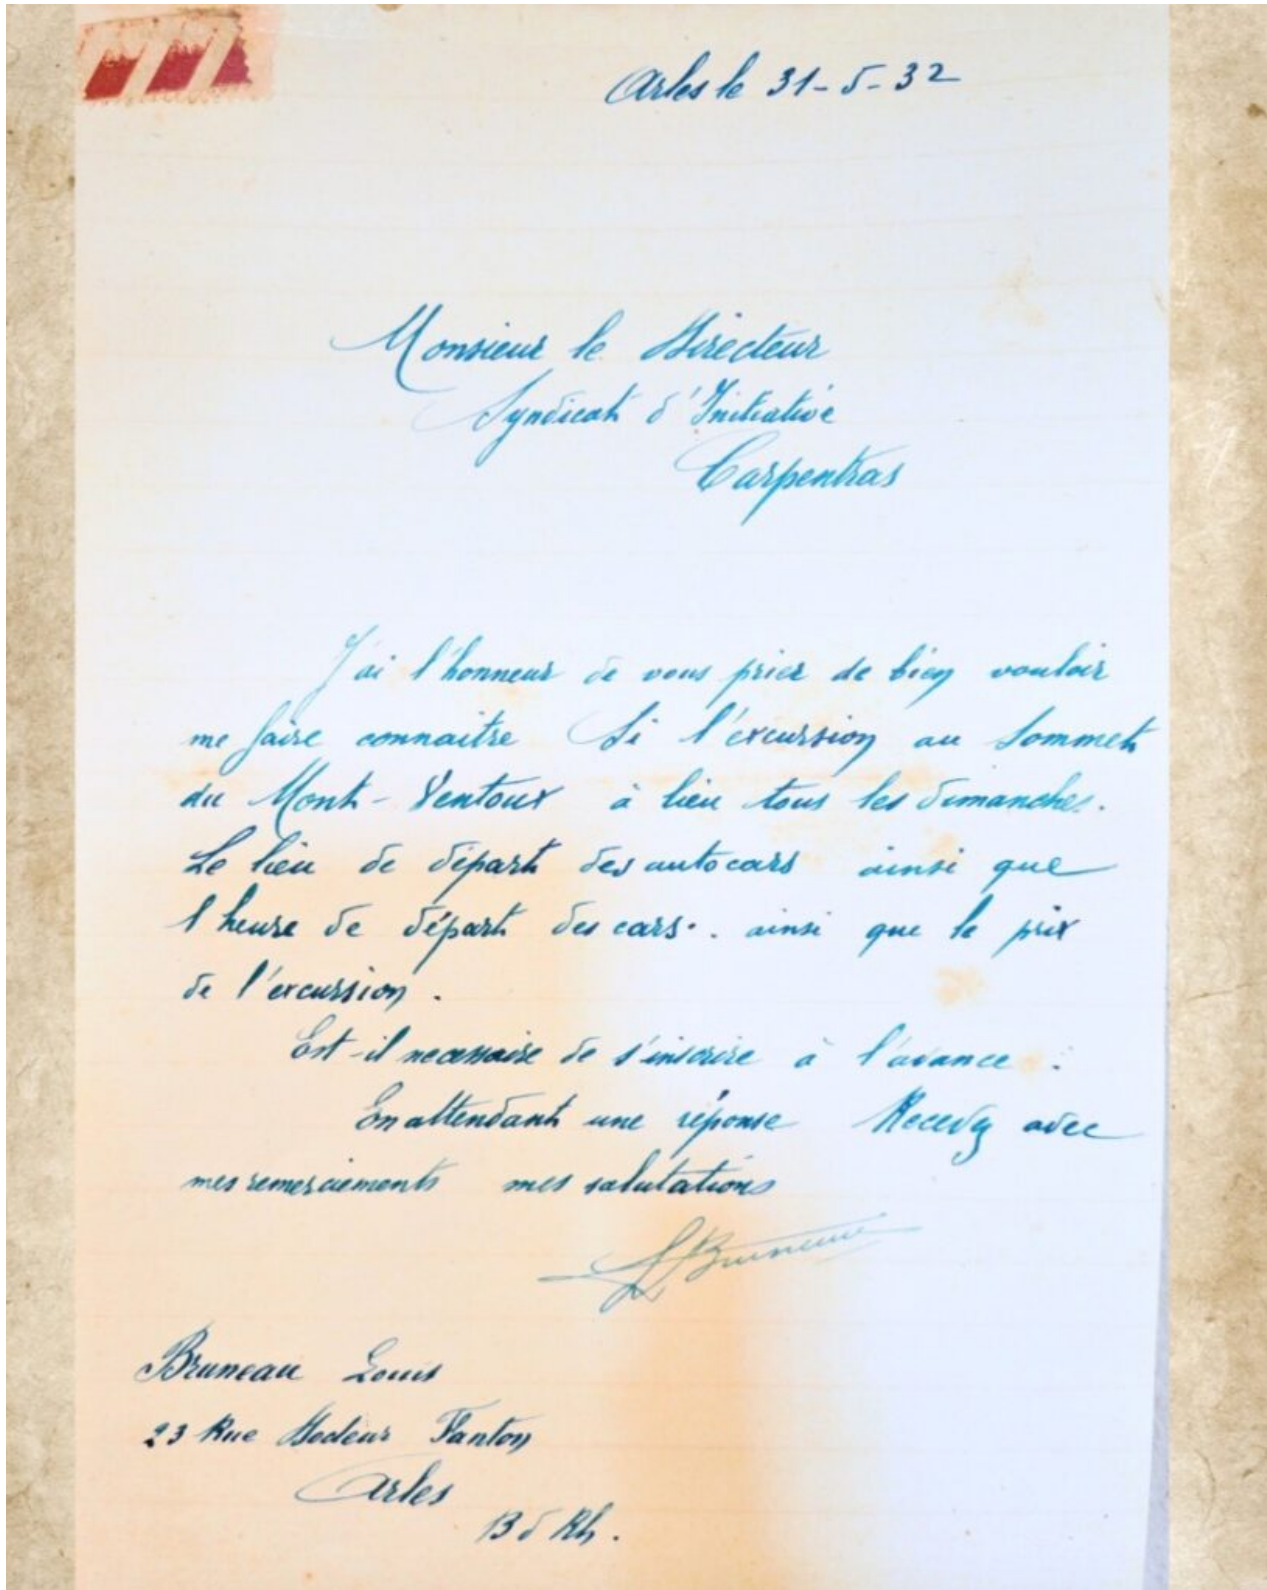 Arles le 31-5-32
Monsieur le Directeur
Syndicat d'Initiative
Carpentras
J'ai l'honneur de vous prier de bien vouloir
me faire connaitre Si l'excursion au Sommet
du Mont-Ventoux à lieu tous les dimanches.
Le lieu de départ des autocars ainsi que
l'heure de départ des cars.. ainsi que le prix
de l'excursion.
Est-il necessaire de s'inscrire à l'avance :
En attendant une réponse Recevez avec
mes remerciements mes salutations
LBruneau
Bruneau Louis
23 Rue Docteur Fanton
Arles
B d Rh.